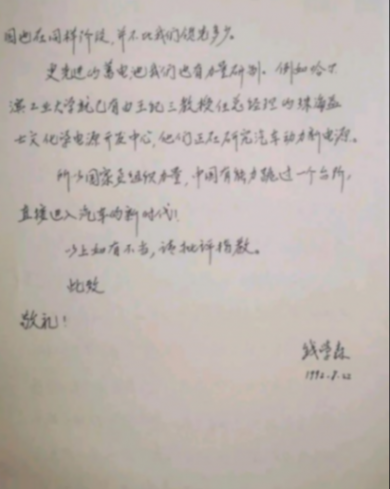 国也在同样阶段，并不比我们优先多少。
更先进的蓄电池我们也有力量研制。例如哈尔
滨工业大学就已有由王纪三教授任总经理的珠海益
士文化学电源开发中心，他们正在研究汽车动力新电源。
所以国家要组织力量，中国有能力跳过一个台阶，
直接进入汽车的新时代！
以上如有不当，请批评指教。
此致
敬礼！
钱学森
1992.8.22